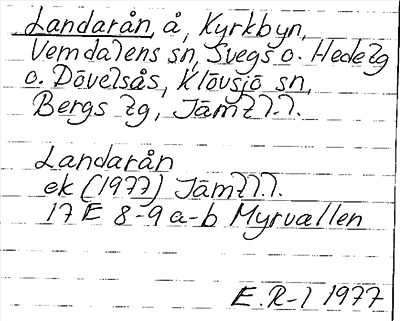 Landarån, å, Kyrkbyn,
Vemdalens sn, Svegs o. Hede tg
o. Dövelsås, Klövsjö sn,
Bergs tg, Jämtl.l.
Landarån
ek (1977) Jämtl.l.
17 E 8-9 a-b Myrvallen
E. R-l 1977